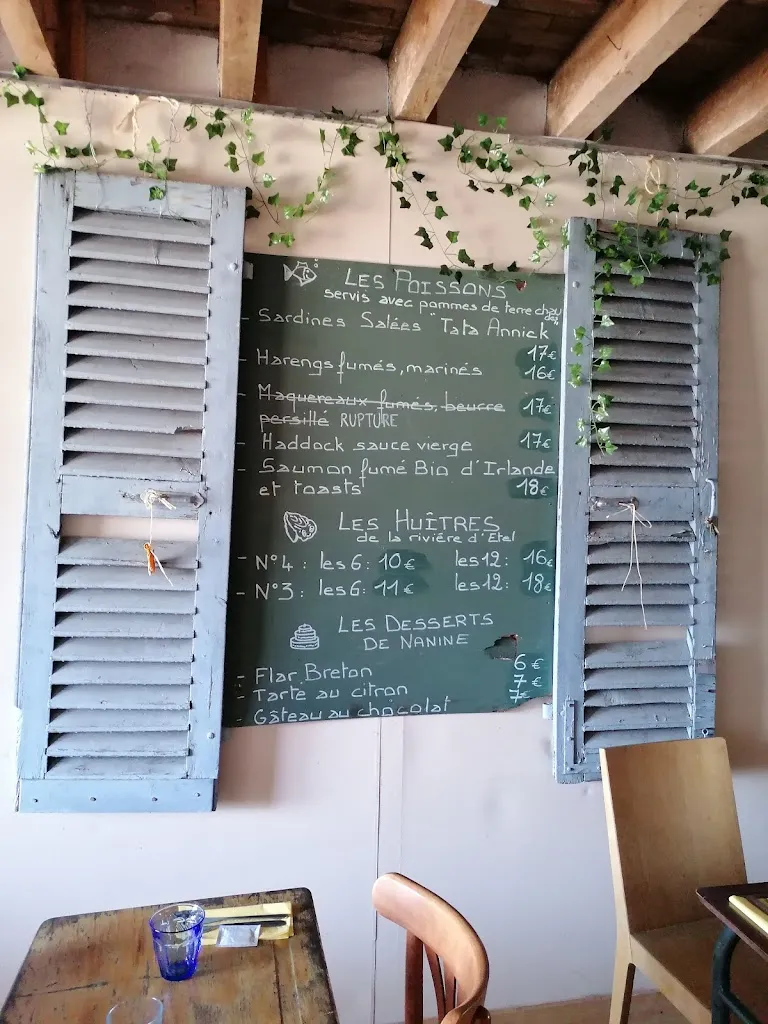 LES POISSONS
servis avec pommes de terre chaudes
- Sardines Salées "Tata Annick"
17€
- Harengs fumés, marinés 16€
- Maquereaux fumés, beurre 17€
persillé RUPTURE
- Haddock sauce vierge 17€
- Saumon fumé Bio d'Irlande
et toasts 18€
LES HUÎTRES
de la rivière d'Etel
- N°4 : les 6 : 10€ les 12 : 16€
- N°3 : les 6 : 11€ les 12 : 18€
LES DESSERTS
DE NANINE
- Flar Breton 6€
- Tarte au citron 7€
- Gâteau au chocolat 7€